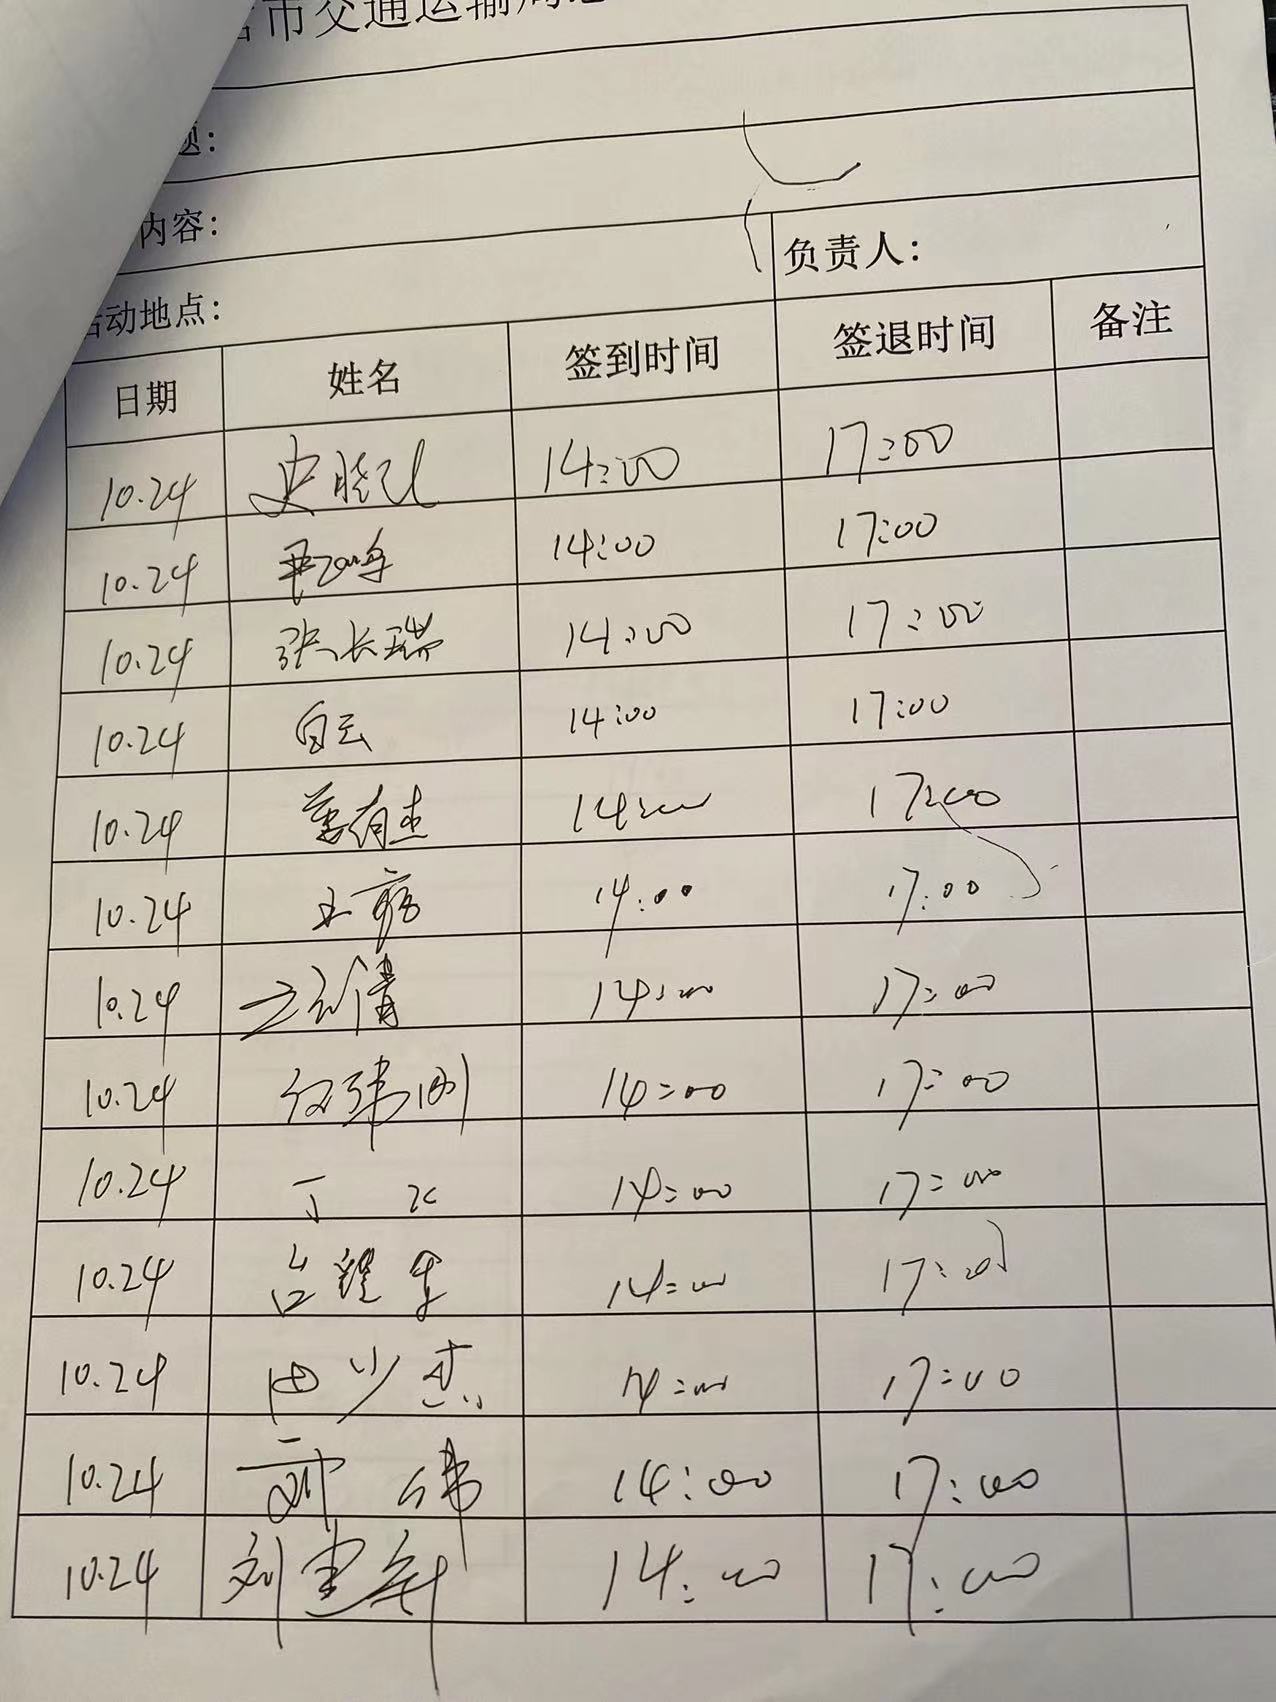 市交通运输局
题：
内容：
活动地点： 负责人：
日期 姓名 签到时间 签退时间 备注
10.24 史晓 14:00 17:00
10.24 14:00 17:00
10.24 张长瑞 14:00 17:00
10.24 白云 14:00 17:00
10.24 有 14:00 17:00
10.24 王 14:00 17:00
10.24 倩 14:00 17:00
10.24 14:00 17:00
10.24 丁 14:00 17:00
10.24 吕 14:00 17:00
10.24 田少杰 14:00 17:00
10.24 伟 14:00 17:00
10.24 刘 14:00 17:00